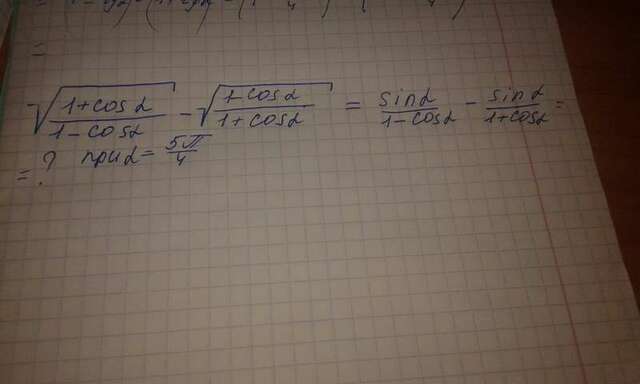 =
√((1+cosα)/(1-cosα)) - √((1-cosα)/(1+cosα)) = sinα/(1-cosα) - sinα/(1+cosα) =
= ? при α = 5π/4